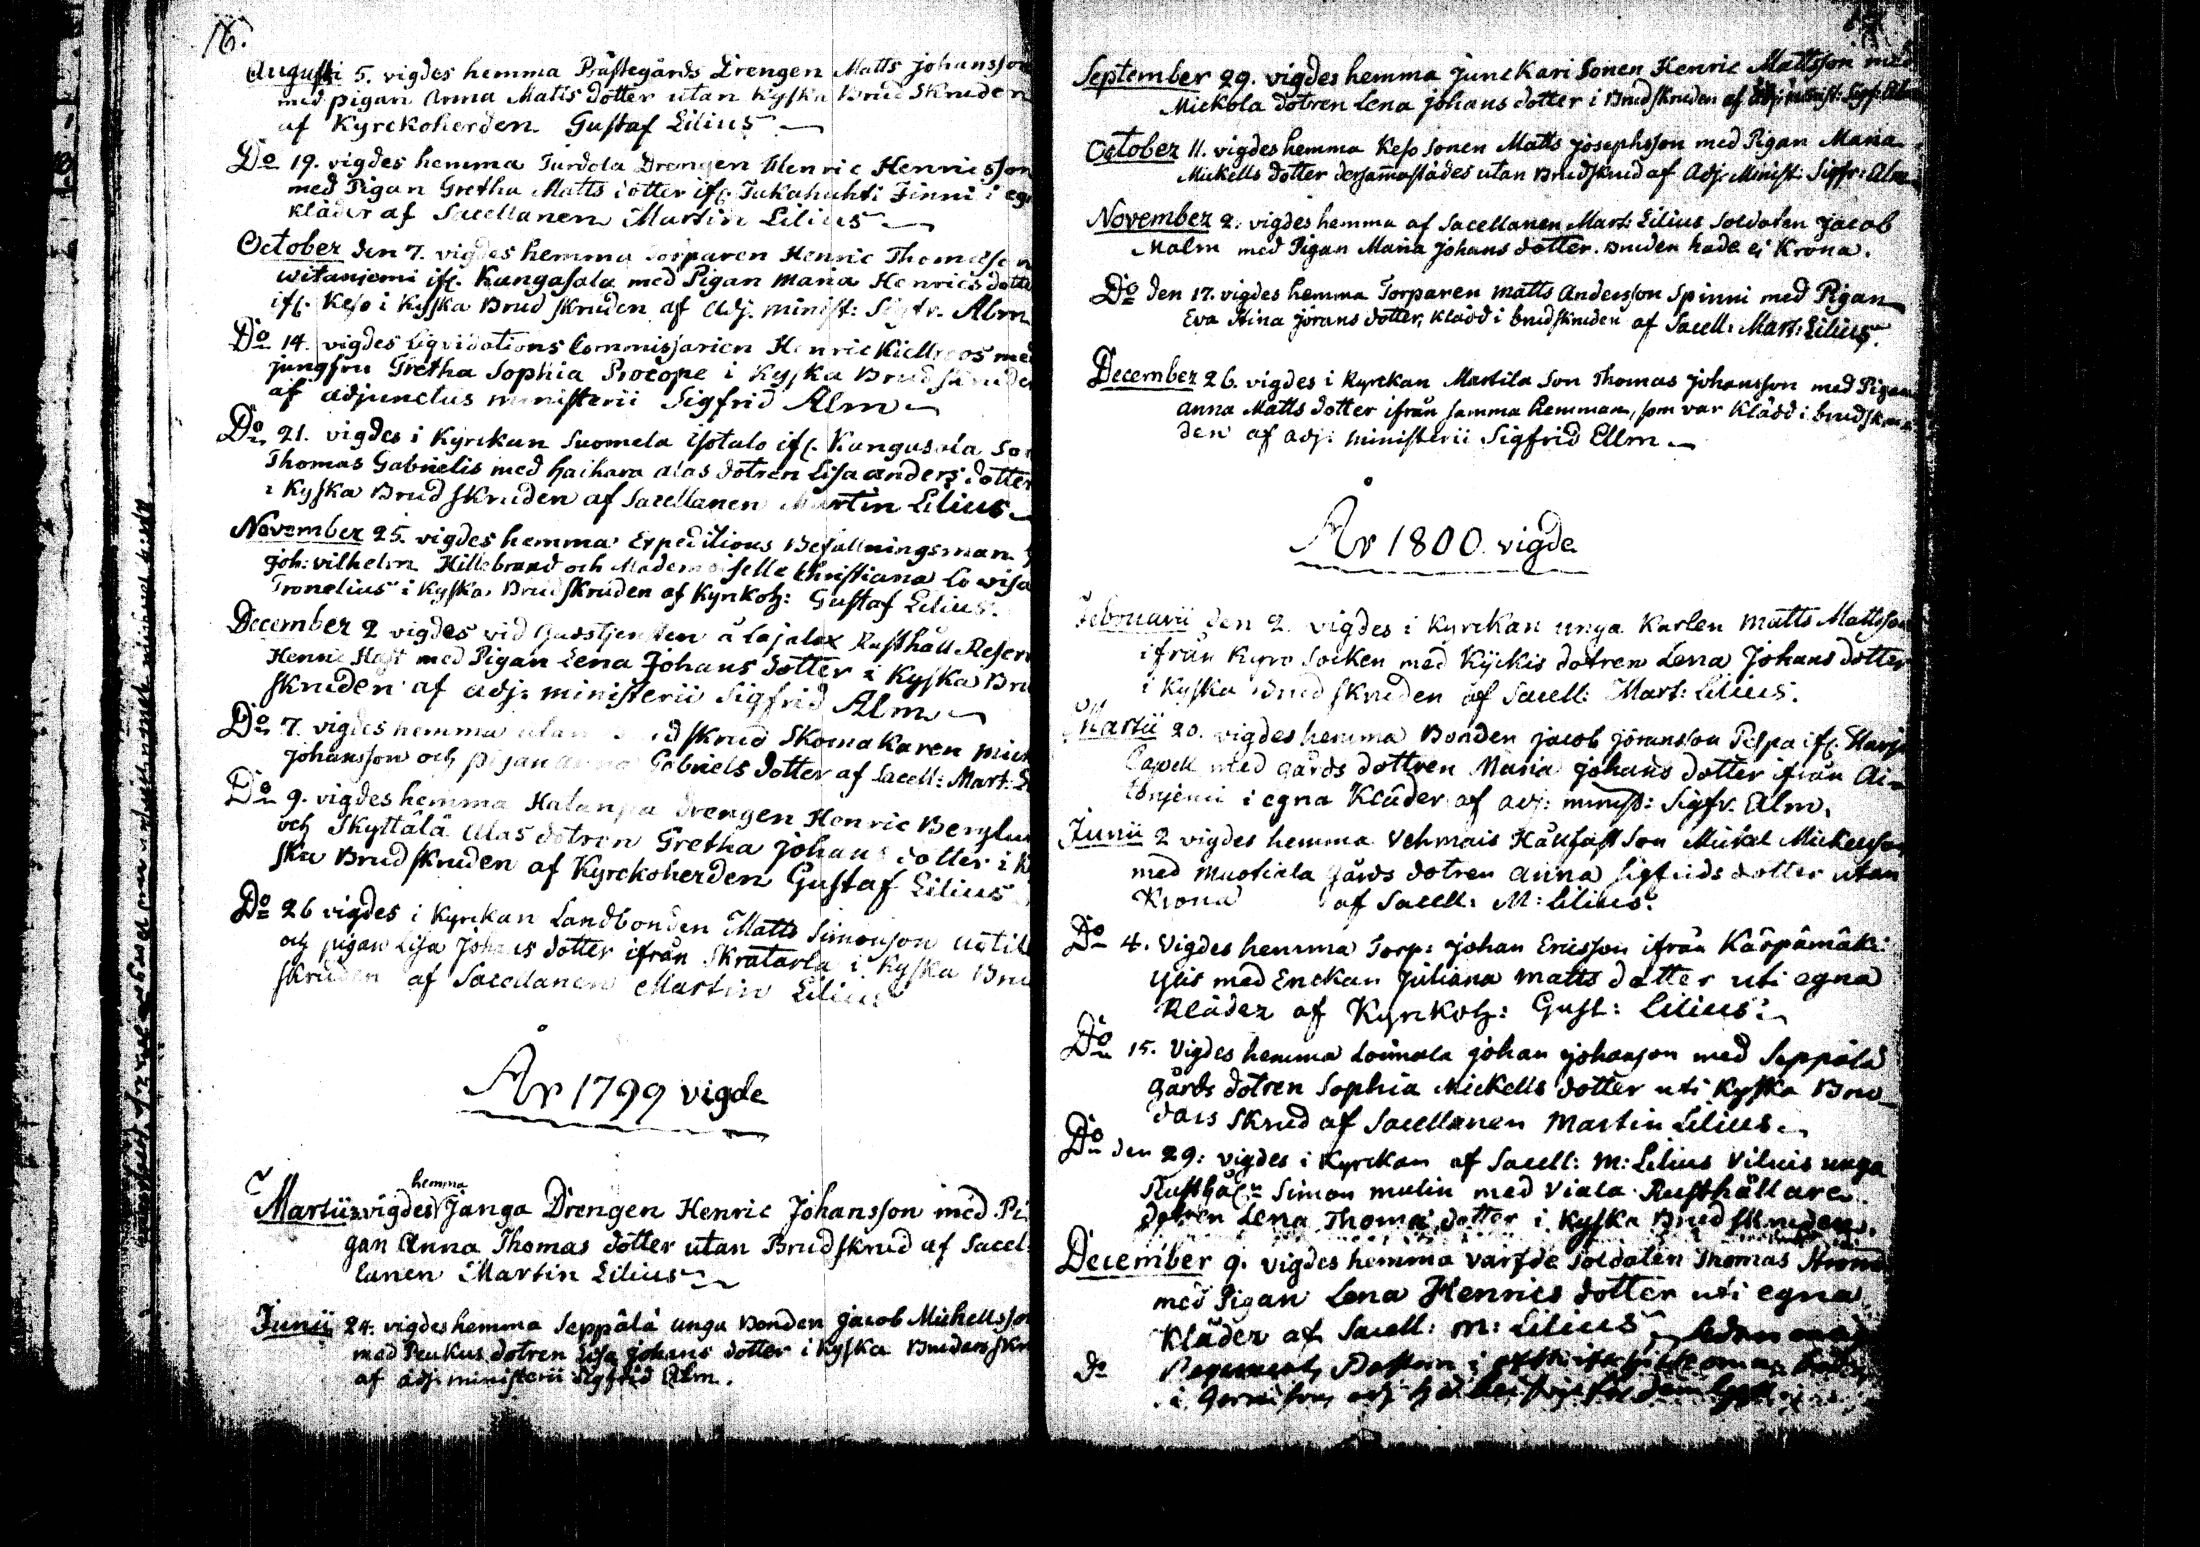 16.
Augusti 5. vigdes hemma Prästegårds Drengen Matts Johansson
med pigan Anna Matts dotter utan Kyska Brud Skruden
af Kyrckoherden Gustaf Lilius
Do 19. vigdes hemma Turdola Drengen Henric Henricsson
med Pigan Gretha Matts dotter ifr. Takahuhti Finni i eg
kläder af Sacellanen Martin Lilius
October den 7. vigdes hemma Torparen Henric Thomasson
Witanjemi ifr. Kangasala med Pigan Maria Henrics dotte
ifr. Keso i Kyska Brud skruden af Adj. minist: Sigfr. Alm
Do 14. vigdes Liqvidations Commissarien Henric
jungfru Gretha Sophia Procope i Kyska Brud
af adjunctus ministerii Sigfrid Alm
Do 21. vigdes i Kyrckan Suomela isotalo ifr. Kangasala So
Thomas Gabrielis med Haihara alas dotren Lisa anders dotter
i Kyska Brud skruden af Sacellanen Martin Lilius
November 25. vigdes hemma Expeditions Befallningsman
Joh: vilhelm Hillebrand och Mademoiselle Christiana Lowisa
Tronelius i Kyska Brud skruden af Kyrkoh: Gustaf Lilius.
December 2 vigdes vid Gudstjensten å Lajalax Rusthåll Reserv
Henric med Pigan Lena Johans dotter i Kyska Bru
skruden af adj: ministerii Sigfrid Alm
Do 7. vigdes hemma utan skrud Skomakaren Mick
Johansson och pigan Gabriels dotter af Sacell: Mart. L
Do 9. vigdes hemma Hatanpä drengen Henric Berglun
och Skyttälä Alas dotren Gretha Johans dotter i K
ska Brud skruden af Kyrckoherden Gustaf Lilius
Do 26 vigdes i Kyrckan Landbonden Matts Simonsson
och pigan Lisa Johans dotter ifrån i Kyska Bru
skruden af Sacellanen Martin Lilius
År 1799 vigde
hemma
Martii vigdes Janga Drengen Henric Johansson med Pi
gan Anna Thomas dotter utan Brudskrud af Sacel
lanen Martin Lilius
Junii 24. vigdes hemma Seppälä unga Bonden Jacob Michellsson
med Peukus dotren Lisa Johans dotter i Kyska Brudars skr
af adj: ministerii Sigfrid Alm.
September 29. vigdes hemma Junckari Sonen Henric Mattsson med
Mickola dotren Lena Johans dotter i Brudskruden af
October 11. vigdes hemma Keso Sonen Matts Josephsson med Pigan Maria
Mickells dotter dersammastädes utan Brudskrud af Adj: Minist: Sigfr: Alm
November 2. vigdes hemma af Sacellanen Mart: Lilius Soldaten Jacob
Malm med Pigan Maria Johans dotter. Bruden hade ej Krona.
Do den 17. vigdes hemma Torparen Matts Andersson Spinni med Pigan
Eva Stina Jörans dotter, klädd i brudskruden af Sacell: Mart: Lilius.
December 26. vigdes i Kyrckan Martila Son Thomas Johansson med Pigan
Anna Matts dotter ifrån samma hemman, som var klädd i brudskru
den af adj: ministerii Sigfrid Ellm
År 1800 vigde
Februarii den 2. vigdes i Kyrckan unga Karlen Matts Mattsson
ifrån Kyro Socken med Kyckis dotren Lena Johans dotter
i Kyska Brud skruden af Sacell: Mart: Lilius.
Martii 20. vigdes hemma Bonden Jacob Jöransson Pispa ifr. Harju
Capell med gårds dottren Maria Johans dotter ifrån Ai-
i egna Kläder af adj: minist: Sigfr. Alm.
Junii 2 vigdes hemma Vehmais Hållfast Son Mickel Mickelsson
med Muotiala Gårds dotren Anna Sigfrids dotter utan
Krona af Sacell: M: Lilius.
Do 4. Vigdes hemma Torp: Johan Ericsson ifrån Kärpämäki
Ylis med Enckan Juliana Matts dotter uti egna
Kläder af Kyrckoh: Gust: Lilius.
Do 15. Vigdes hemma Johan Johansson med Seppälä
Gårds dotren Sophia Mickells dotter uti Kyska Bru-
dars Skrud af Sacellanen Martin Lilius.
Do den 29. vigdes i Kyrckan af Sacell: M: Lilius Vilnis unga
Simon Mulin med Viala Rusthållare
dotren Lena Thomas dotter i Kyska Brud skruden.
December 9. vigdes hemma värfde soldaten Thomas
med Pigan Lena Henrics dotter uti egna
Kläder af Sacell: M: Lilius, sedan
Do